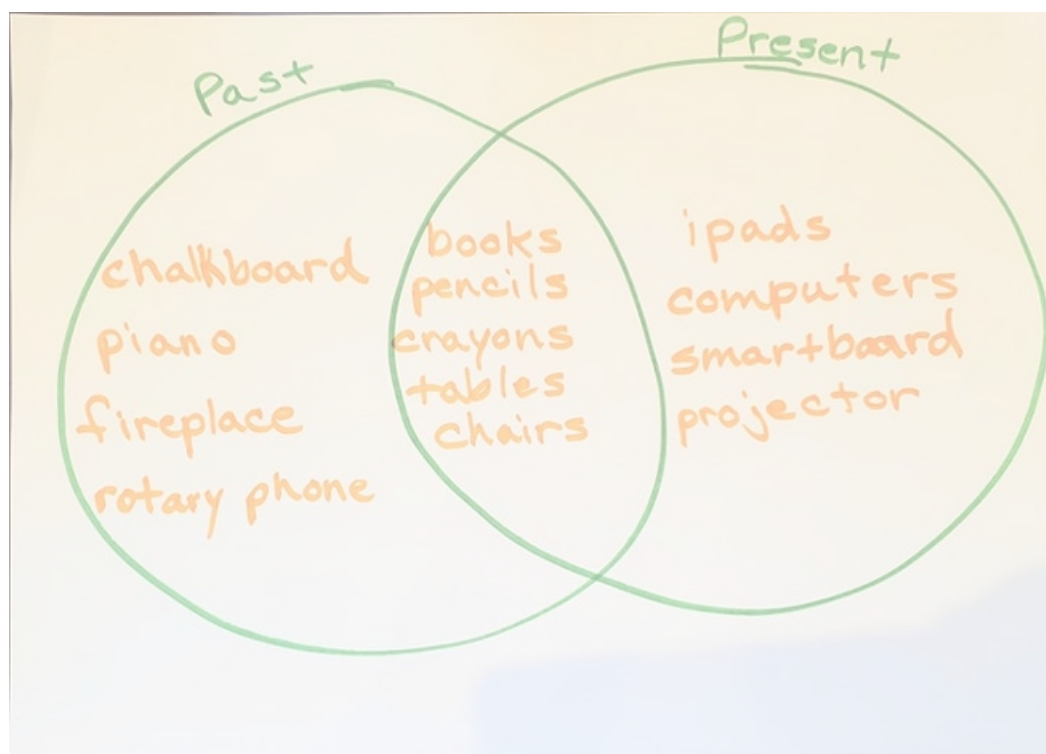 Past
chalkboard
piano
fireplace
rotary phone
books
pencils
crayons
tables
chairs
Present
ipads
computers
smartboard
projector